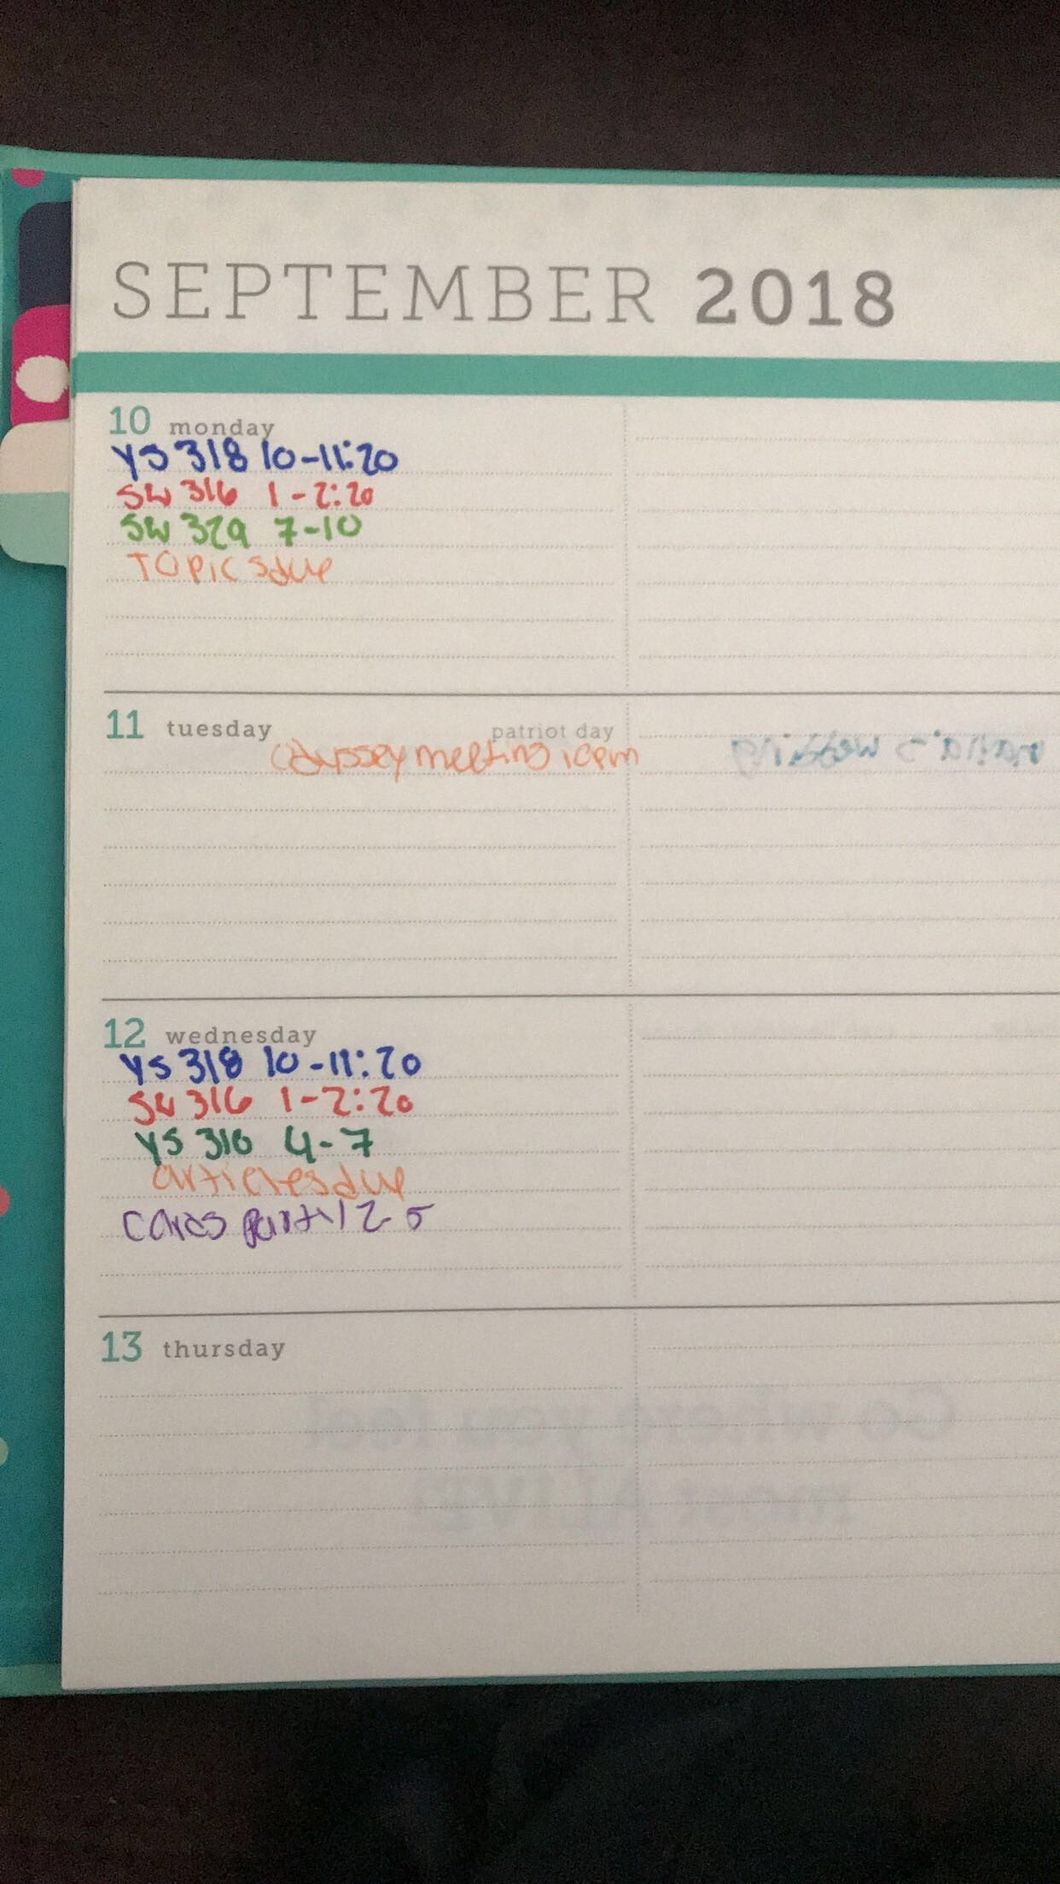 SEPTEMBER 2018
10 monday
YS 318 10-11:20
SW 316 1-2:20
SW 329 7-10
Topics due
11 tuesday patriot day
Odyssey meeting 10pm
12 wednesday
YS 318 10-11:20
SW 316 1-2:20
YS 310 4-7
articles due
13 thursday
Go where you feel
most ALIVE!